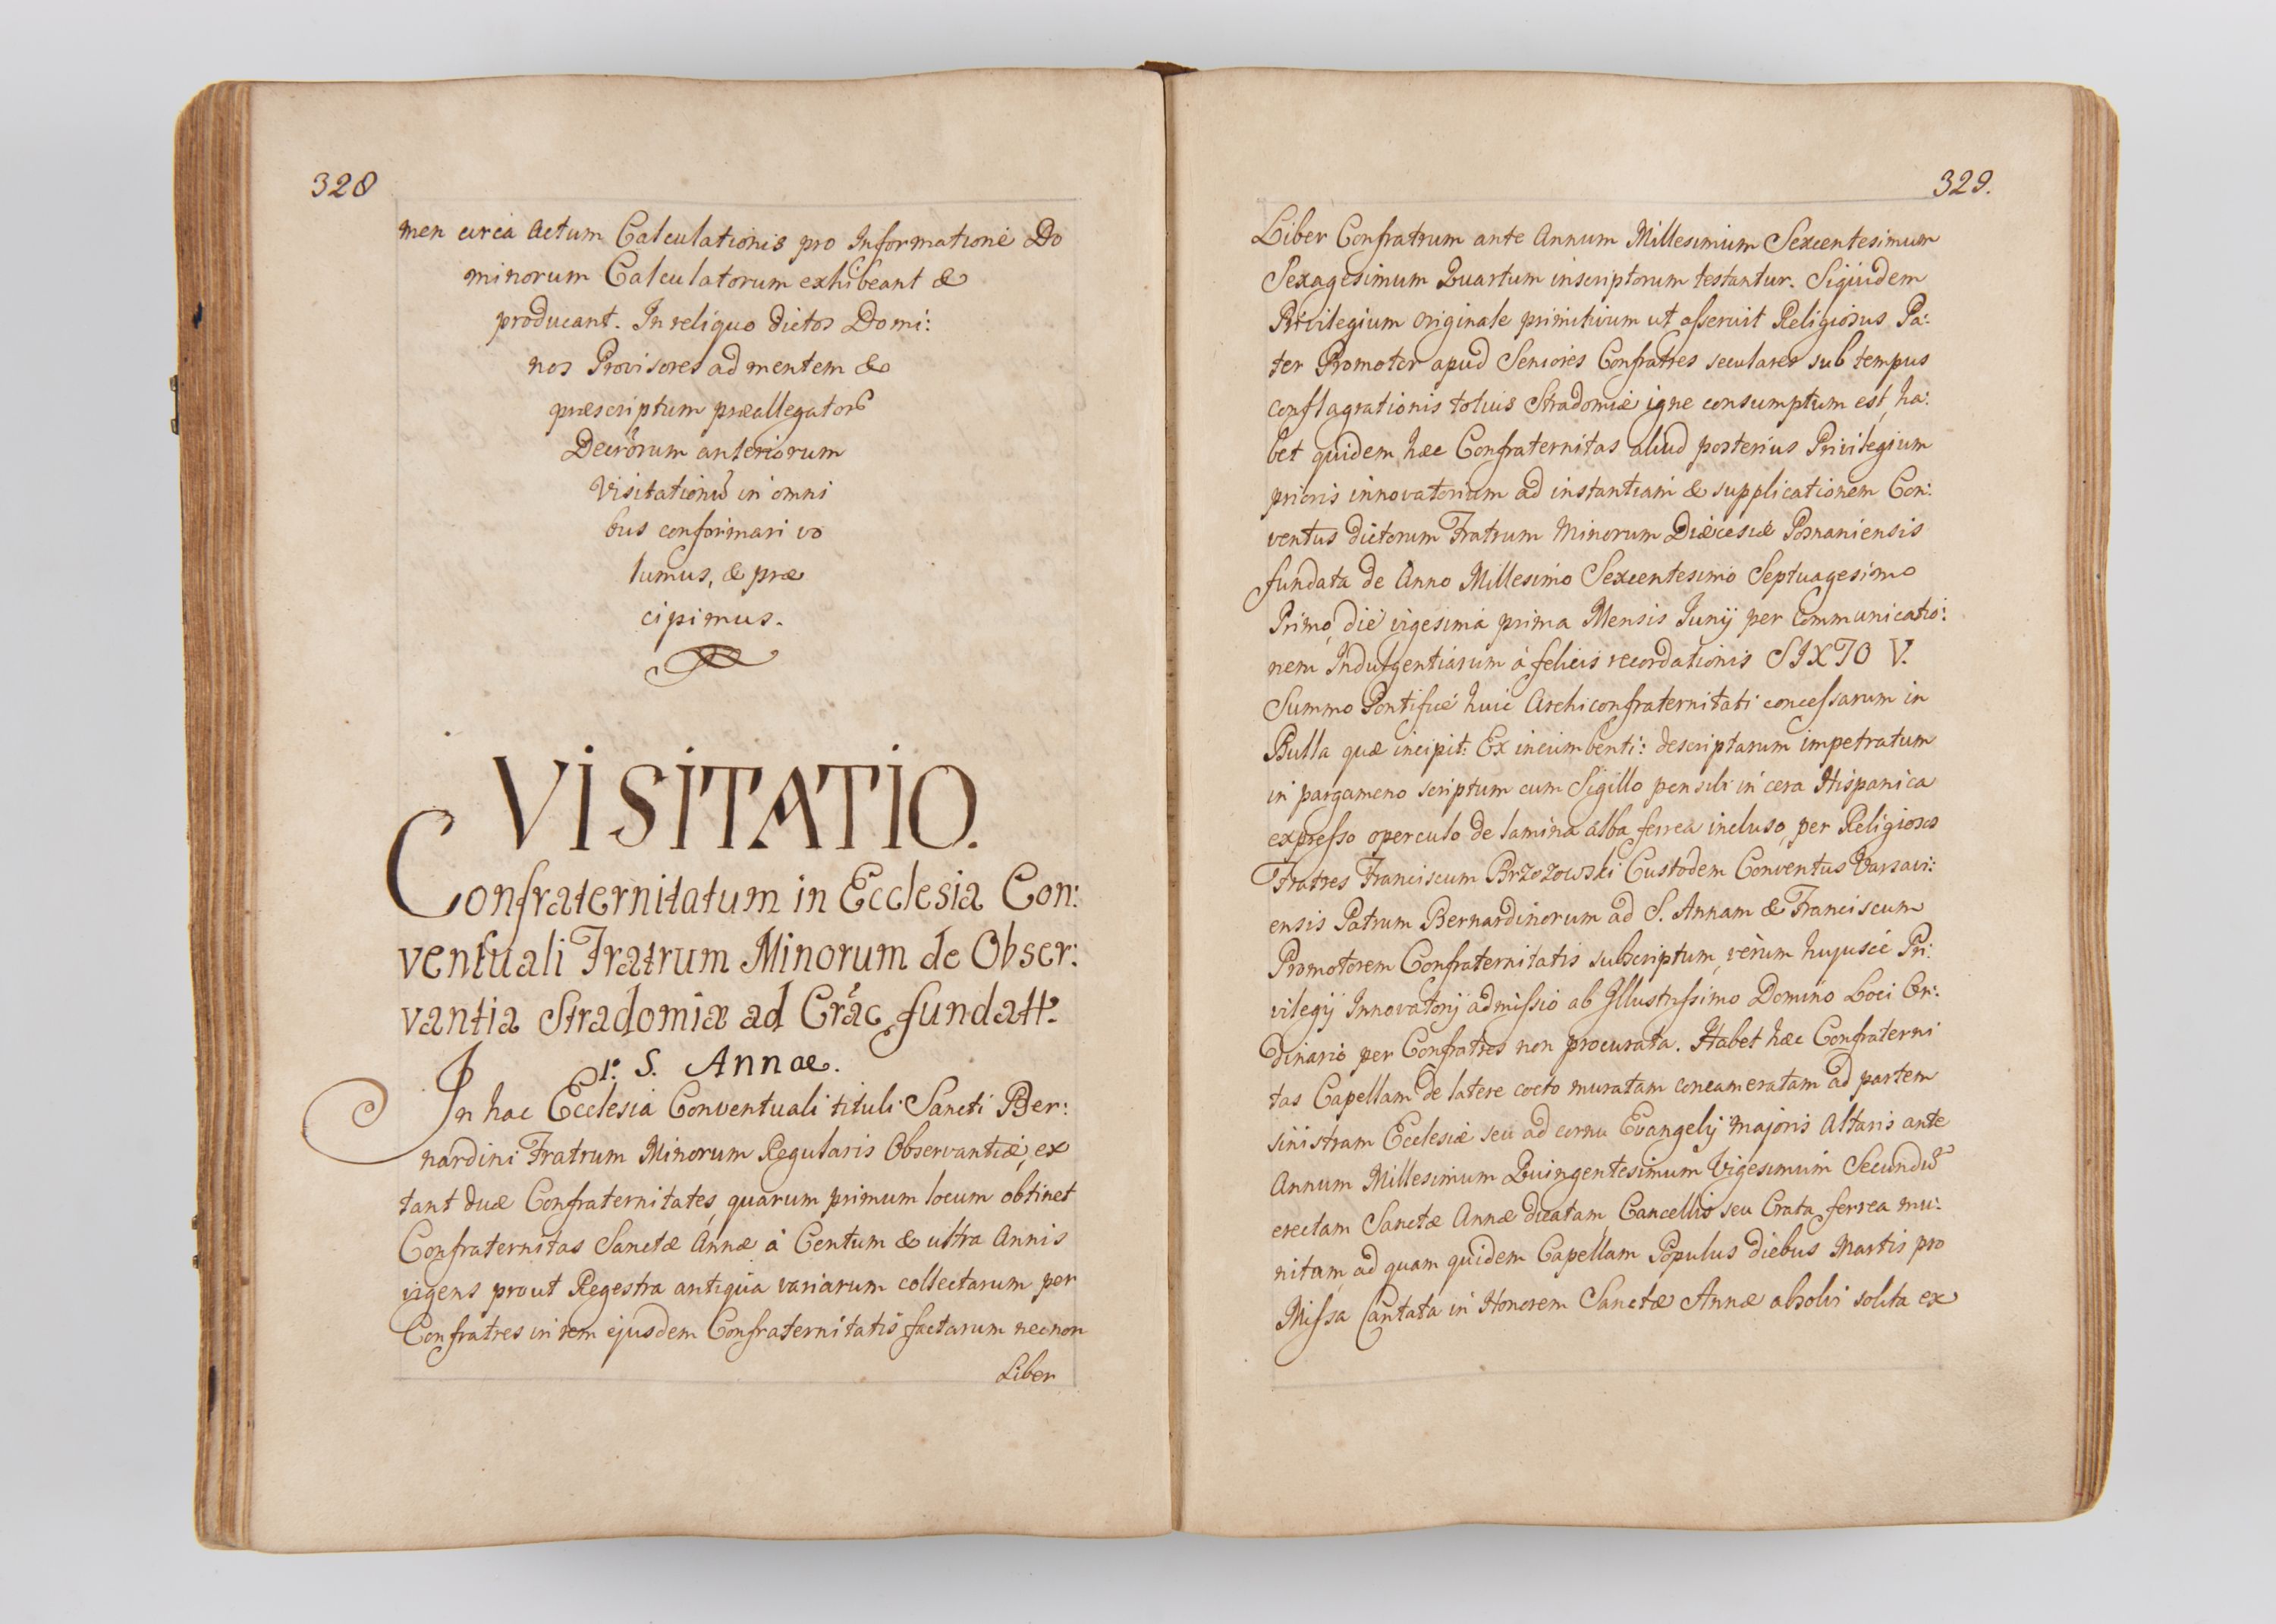 328
men circa actum Calculationis pro Informatione Do
minorum Calculatorum exhibeant &
producant. In reliquo dictos Domi:
nos Provisores ad mentem &
præscriptum præallegator
Decrorum anteriorum
Visitationũ in omni
bus conformari vo
lumus, & præ
cipimus.
VISITATIO.
Confraternitatum in Ecclesia Con:
ventuali Fratrum Minorum de Obser:
vantia Stradomiæ ad Crac. fundatt.
1º. S. Annæ.
In hac Ecclesia Conventuali tituli Sancti Ber:
nardini Fratrum Minorum Regularis Observantiæ, ex
tant duæ Confraternitates, quarum primum locum obtinet
Confraternitas Sanctæ Annæ à Centum & ultra Annis
vigens prout Regestra antiqua variarum collectarum per
Confratres in rem ejusdem Confraternitatis factarum necnon
Liber
329.
Liber Confratrum ante Annum Millesimum Sexcentesimum
Sexagesimum Quartum inscriptorum testantur. Siquidem
Privilegium originale primitivum ut asseruit Religiosus Pa:
ter Promotor apud Seniores Confratres seculares sub tempus
conflagrationis totius Stradomiæ igne consumptum est, ha:
bet quidem hæc Confraternitas aliud posterius Privilegium
prioris innovatorium ad instantiam & supplicationem Con:
ventus dictorum Fratrum Minorum Diæcesis Posnaniensis
fundata de Anno Millesimo Sexcentesimo Septuagesimo
Primo, die vigesima prima Mensis Junij per communicatio:
nem Indulgentiarum à felicis recordationis SIXTO V.
Summo Pontifice huic Archiconfraternitati concessarum in
Bulla quæ incipit: Ex incumbenti: descriptarum impetratum
in pargameno scriptum cum Sigillo pensili in cera Hispanica
expresso operculo de lamina alba ferrea incluso, per Religiosos
Fratres Franciscum Brzozowski Custodem Conventus Varsavi:
ensis Patrum Bernardinorum ad S. Annam & Franciscum
Promotorem Confraternitatis subscriptum, verum hujusce Pri:
vilegij Innovatorij admissio ab Illustrissimo Domino Loci Or:
dinario per Confratres non procurata. Habet hæc Confraterni
tas Capellam de latere cocto muratam concameratam ad partem
sinistram Ecclesiæ seu ad cornu Evangelij majoris Altaris ante
Annum Millesimum Quingentesimum Vigesimum Secundũ
erectam Sanctæ Annæ dicatam, Cancellis seu Crata ferrea mu:
nitam, ad quam quidem Capellam Populus diebus Martis pro
Missa Cantata in Honorem Sanctæ Annæ absolvi solita ex